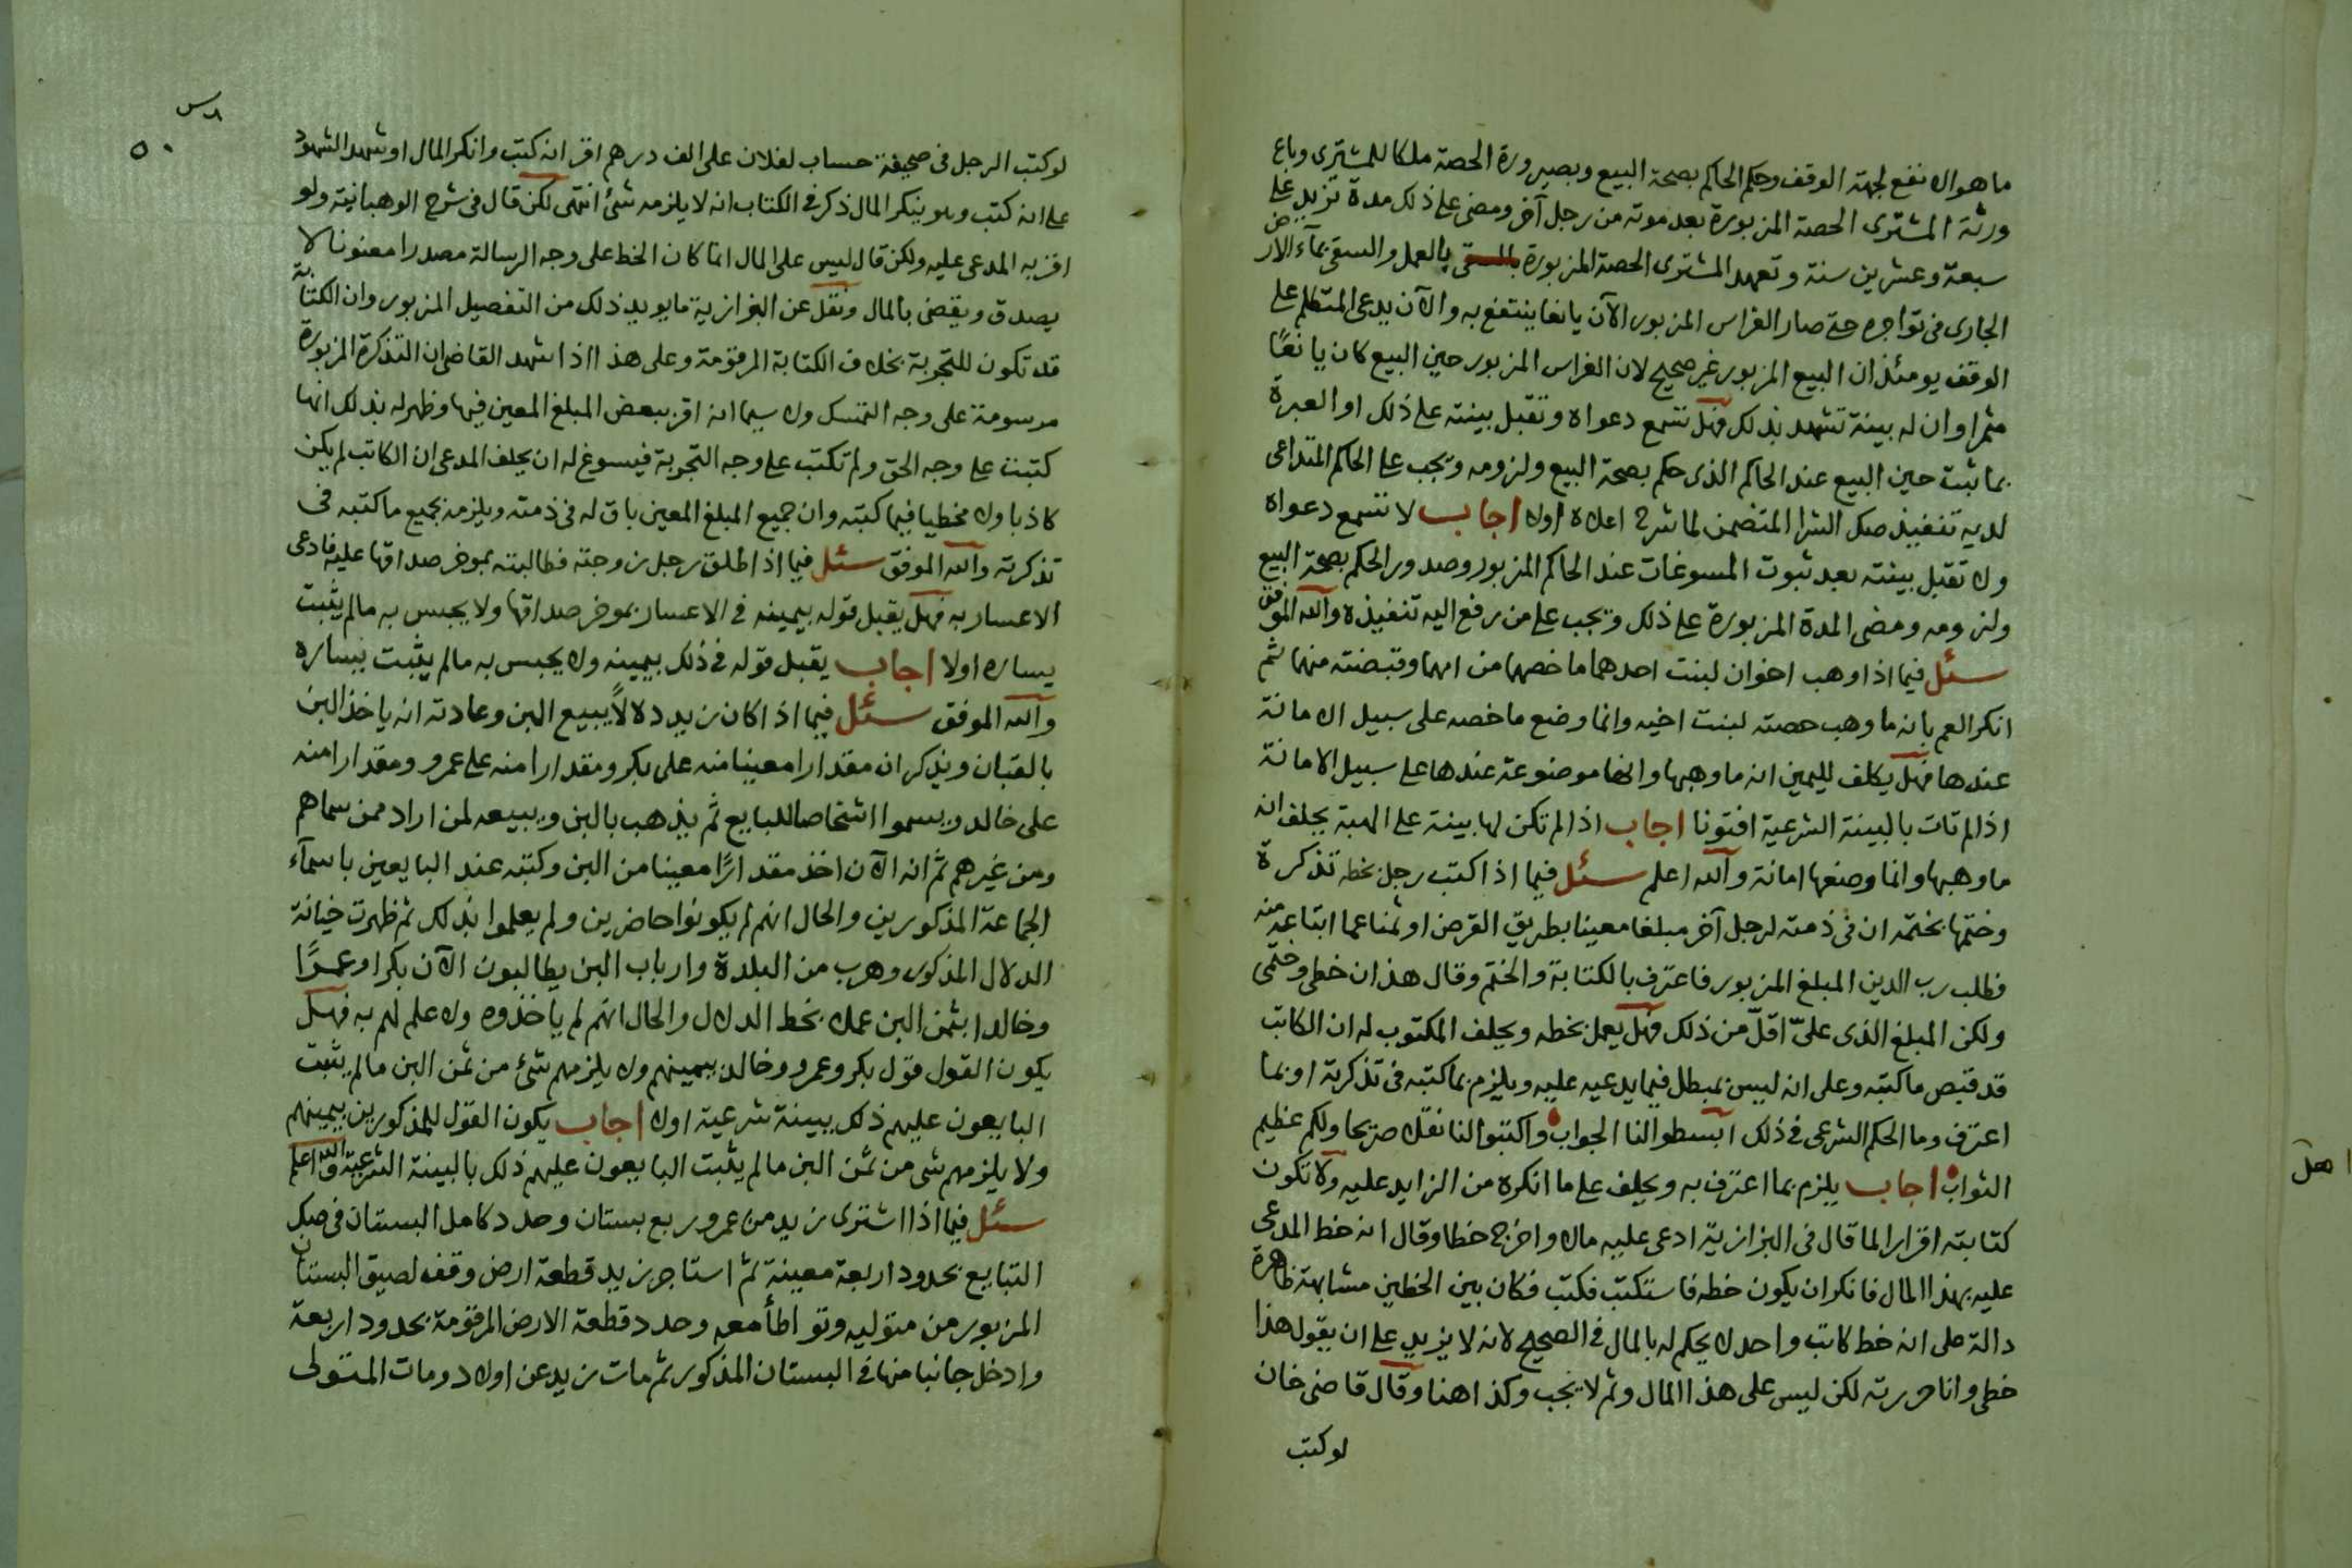 ما هو الانفع لجهة الوقف وحكم الحاكم بصحة البيع وبصيرورة الحصة ملكا للمشترى وباع
ورثة المشترى الحصة المزبورة بعد موته من رجل آخر ومضى على ذلك مدة تزيد على
سبعة وعشرين سنة وتعهد المشترى الحصة المزبورة بالعمل والسقى بمآء الارض
الجارى فى تواجره حتى صار الغراس المزبور الآن يانعا ينتفع به والآن يدعى المتكلم على
الوقف يومئذ ان البيع المزبور غير صحيح لان الغراس المزبور حين البيع كان يانعًا
مثمرا وان له بينة تشهد بذلك فهل تسمع دعواه وتقبل بينته على ذلك او العبرة
بما ثبت حين البيع عند الحاكم الذى حكم بصحة البيع ولزومه ويجب على الحاكم المتداعى
لديه تنفيذ صك الشرا المتضمن لما شرح اعلاه اولا اجاب لا تسمع دعواه
ولا تقبل بينته بعد ثبوت المسوغات عند الحاكم المزبور وصدور الحكم بصحة البيع
ولزومه ومضى المدة المزبورة على ذلك ويجب على من رفع اليه تنفيذه والله الموفق
سئل فيما اذا وهب اخوان لبنت احدهما ما خصهما من امهما وقبضته منهما ثم
انكر العم بانه ما وهب حصته لبنت اخيه وانما وضع ما خصه على سبيل الامانة
عندها فهل يكلف لليمين انه ما وهبها وانها موضوعة عندها على سبيل الامانة
اذا لم تات بالبينة الشرعية افتونا اجاب اذا لم تكن لها بينة على الهبة يحلف انه
ما وهبها وانما وضعها امانة والله اعلم سئل فيما اذا كتب رجل بخطه تذكرة
وختمها بختمه ان فى ذمته لرجل آخر مبلغا معينا بطريق القرض او ثمنا عما ابتاعه منه
فطلب رب الدين المبلغ المزبور فاعترف بالكتابة والختم وقال هذان خطى وختمى
ولكن المبلغ الذى علىّ اقلّ من ذلك فهل يعمل بخطه ويحلف المكتوب له ان الكاتب
قد قبض ما كتبه وعلى انه ليس بمبطل فيما يدعيه عليه ويلزم بما كتبه فى تذكرته او بما
اعترف وما الحكم الشرعى فى ذلك ابسطوا لنا الجواب واكتبوا لنا نقلا صريحا ولكم عظيم
الثواب اجاب يلزم بما اعترف به ويحلف على ما انكره من الزايد عليه ولا تكون
كتابته اقرارا لما قال فى البزازية ادعى عليه مالا واخرج خطا وقال انه خط المدعى
عليه بهذا المال فانكر ان يكون خطه فاستكتب فكتب فكان بين الخطين مشابهة ظاهرة
دالة على انه خط كاتب واحد لا يحكم له بالمال فى الصحيح لانه لا يزيد على ان يقول هذا
خطى وانا حررته لكن ليس على هذا المال وثم لا يجب وكذا هنا وقال قاضى خان
لو كتب
٥٠
لو كتب الرجل فى صحيفة حساب لفلان على الف درهم اقر انه كتب وانكر المال او شهد الشهود
على انه كتب وهو ينكر المال ذكر فى الكتاب انه لا يلزمه شئ انتهى لكن قال فى شرح الوهبانية ولو
اقر به المدعى عليه ولكن قال ليس على المال انما كان الخط على وجه الرسالة مصدرا معنونا لا
يصدق ويقضى بالمال ونقل عن البزازية ما يويد ذلك من التفصيل المزبور وان الكتابة
قد تكون للتجربة بخلاف الكتابة المرقومة وعلى هذا اذا شهد القاضى ان التذكرة المزبورة
مرسومة على وجه التمسك ولا سيما انه اقر ببعض المبلغ المعين فيها وظهر له بذلك انها
كتبت على وجه الحق ولم تكتب على وجه التجربة فيسوغ له ان يحلف المدعى ان الكاتب لم يكن
كاذبا ولا مخطيا فيما كتبه وان جميع المبلغ المعين باق له فى ذمته ويلزمه بجميع ما كتبه فى
تذكرته والله الموفق سئل فيما اذا طلق رجل زوجته فطالبته بموخر صداقها عليه فادعى
الاعسار به فهل يقبل قوله بيمينه فى الاعسار بموخر صداقها ولا يحبس به مالم يثبت
يساره اولا اجاب يقبل قوله فى ذلك بيمينه ولا يحبس به مالم يثبت يساره
والله الموفق سئل فيما اذا كان زيد دلالاً يبيع البن وعادته انه ياخذ البن
بالقبان ويذكر ان مقدارا معينا منه على بكر ومقدارا منه على عمرو ومقدارا منه
على خالد ويسموا اشخاصا للبايع ثم يذهب بالبن ويبيعه لمن اراد ممن سماهم
ومن غيرهم ثم انه الآن اخذ مقدارًا معينا من البن وكتبه عند البايعين باسمآء
الجماعة المذكورين والحال انهم لم يكونوا حاضرين ولم يعلموا بذلك ثم ظهرت خيانة
الدلال المذكور وهرب من البلدة وارباب البن يطالبون الآن بكرا وعمرًا
وخالدا بثمن البن عملا بخط الدلال والحال انهم لم ياخذوه ولا علم لهم به فهل
يكون القول قول بكر وعمرو وخالد بيمينهم ولا يلزمهم شئ من ثمن البن مالم يثبت
البايعون عليهم ذلك ببينة شرعية اولا اجاب يكون القول للمذكورين بيمينهم
ولا يلزمهم شى من ثمن البن مالم يثبت البايعون عليهم ذلك بالبينة الشرعية والله اعلم
سئل فيما اذا اشترى زيد من عمرو ربع بستان وحدد كامل البستان فى صك
التبايع بحدود اربعة معينة ثم استاجر زيد قطعة ارض وقف لصيق البستان
المزبور من متوليه وتواطأ معه وحدد قطعة الارض المرقومة بحدود اربعة
وادخل جانبا منها فى البستان المذكور ثم مات زيد عن اولاد ومات المتولى